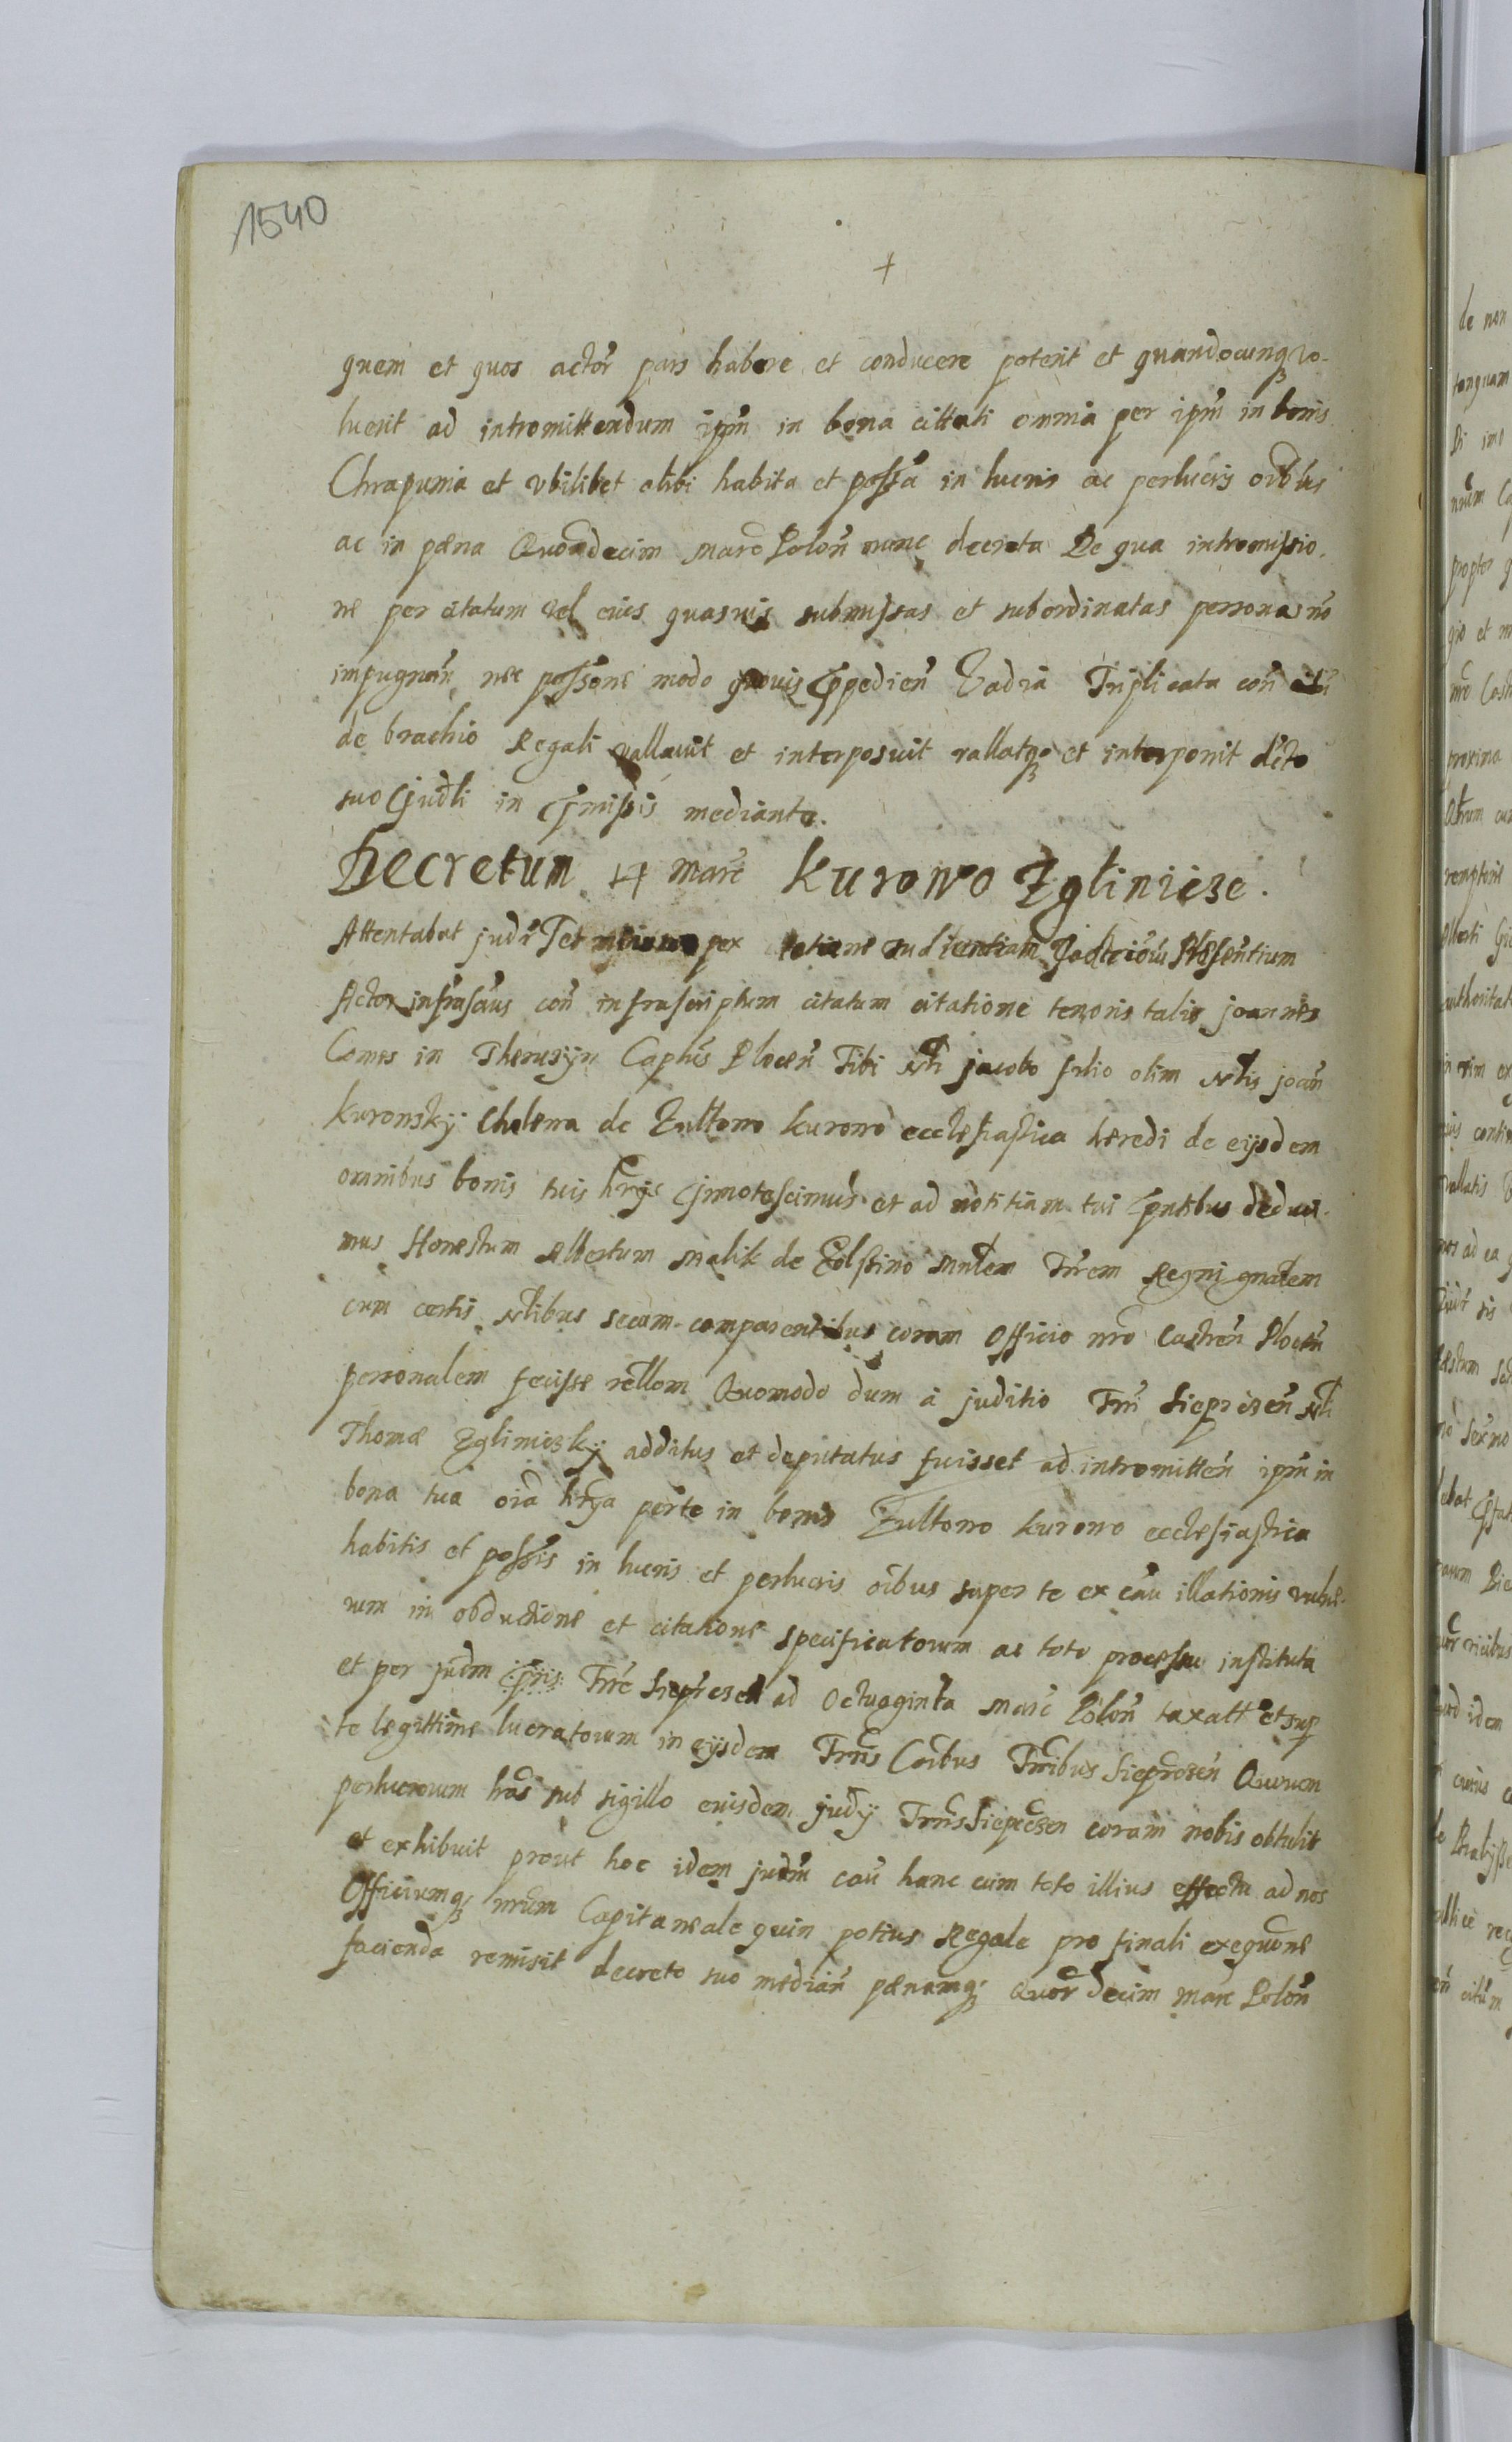 1540
+
quem et quos actor pars habere et conducere poterit et quandocunq vo-
luerit ad intromittendum ipm in bona cittati omnia per ipm in bonis
Chrapunia et vbilibet alibi habita et possa in lucris ac perlucris oibus
ac in pæna Quordecim marc Polon nunc decreta De qua intromissio-
ne per citatum vel eius quasuis submissas et subordinatas personas no
impugnan nec possone modo quouis impedien Vadia Triplicata con
de brachio Regali vallauit et interposuit vallatq et interponit dicto
suo judli in pmissis mediante.
Decretum 14 marc Kurowo Zglinicze.
Attentabat judi Ter audientiam Presentium
Actor infrascrus con infrascriptum citatum citatione tenoris talis joannes
Comes in Thenczyn Captus Plocen Tibi Nli jacobo filio olim Nlis joan
Kuronsky Cholewa de Zultowo kurowo ecclesiastica hæredi de eijsdem
omnibus bonis tuis hrijs innotescimus et ad notitiam tui pntibus deduci-
mus Honestum Albertum Malik de Golstino Mnlem Trrem Regni gnalem
cum certis Nlibus secum comparentibus coram Officio nro Castren Plocen
personalem fecisse rellom Quomodo dum a juditio Trri Sieprczen Nli
Thomæ Zgliniczky additus et deputatus fuisset ad intromitten ipm in
bona tua oia hrija per te in bonis Zultowo kurowo ecclesiastica
habitis et possis in lucris et perlucris oibus super te ex cau illationis vulne-
rum in obductione et citatione specificatorum ac toto processu instituta
et per judm Trre Sieprczen ad Octuaginta Marc Polon taxatt et sup
te legittime lucratorum in eijsdem Trris Coibus Trribus Sieprczen Quorum
perlucrorum lras sub sigillo eiusdem judij Trris Sieprczen coram nobis obtulit
et exhibuit prout hoc idem judm cau hanc cum toto illius effectu ad nos
Officiumq nrum Capitaneale quin potius Regale pro finali exequone
facienda remisit decreto suo median pænamq Quor decim marc Polon